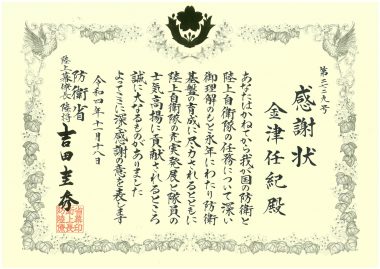 第二二九号
感謝状
金津任紀殿
あなたはかねてから我が国の防衛と
陸上自衛隊の任務について深い
御理解のもと永年にわたり防衛
基盤の育成に尽力されるとともに
陸上自衛隊の充実発展と隊員の
士気高揚に貢献されるところ
誠に大なるものがありました
よってここに深く感謝の意を表します
令和四年十一月十八日
防衛省
陸上幕僚長陸将
吉田圭秀